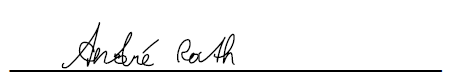 André Rath